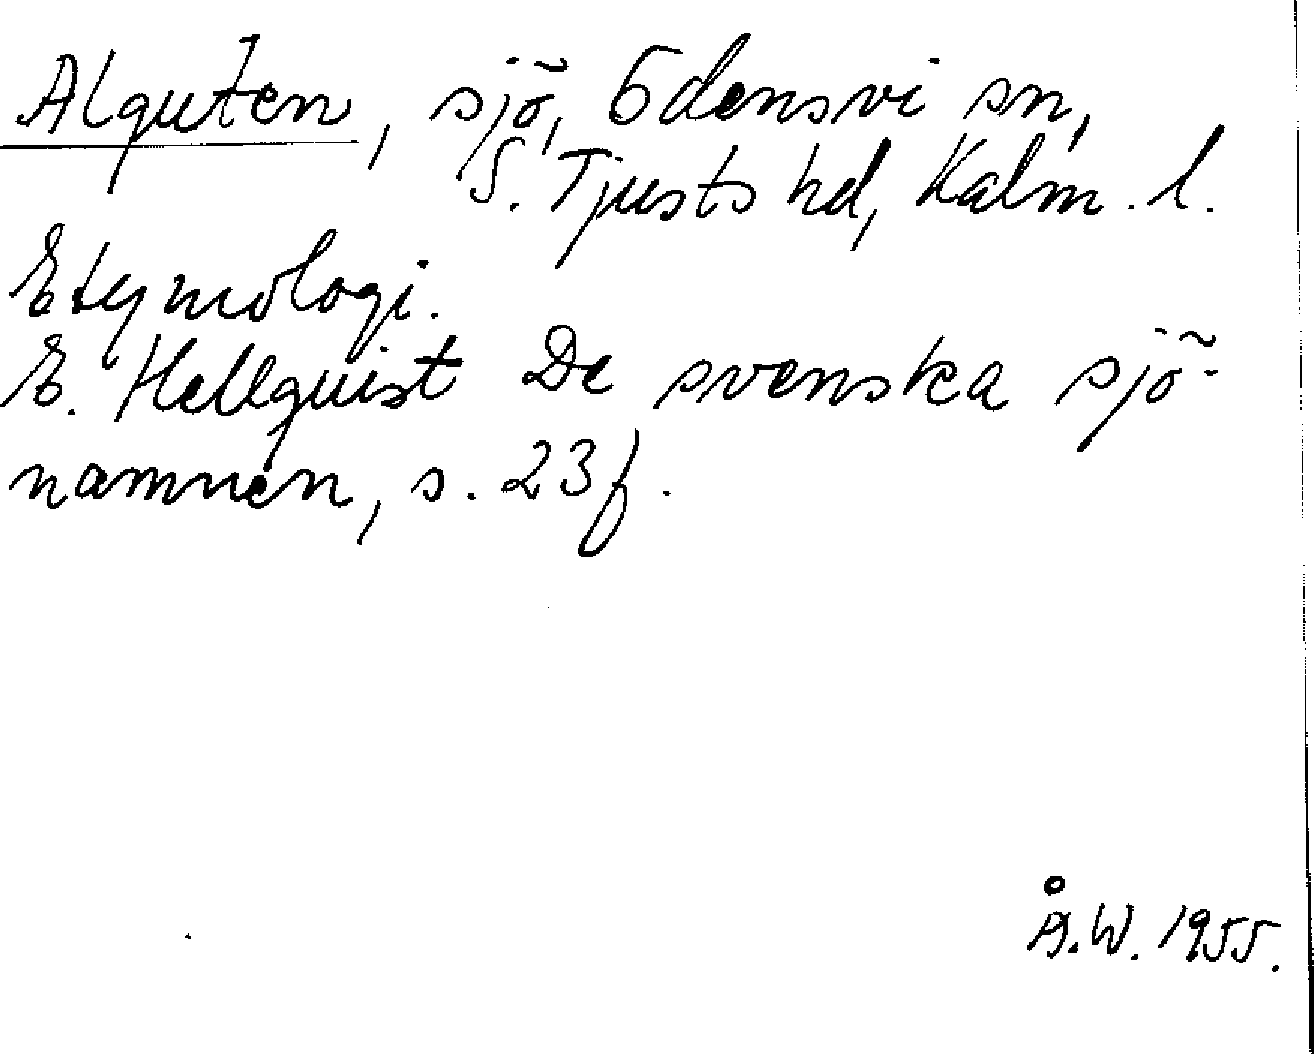 Alguten, sjö, Odensvi sn,
S. Tjusts hd, Kalm. l.
Etymologi.
E. Hellquist De svenska sjö-
namnen, s. 23f.
Å.W. 1955.